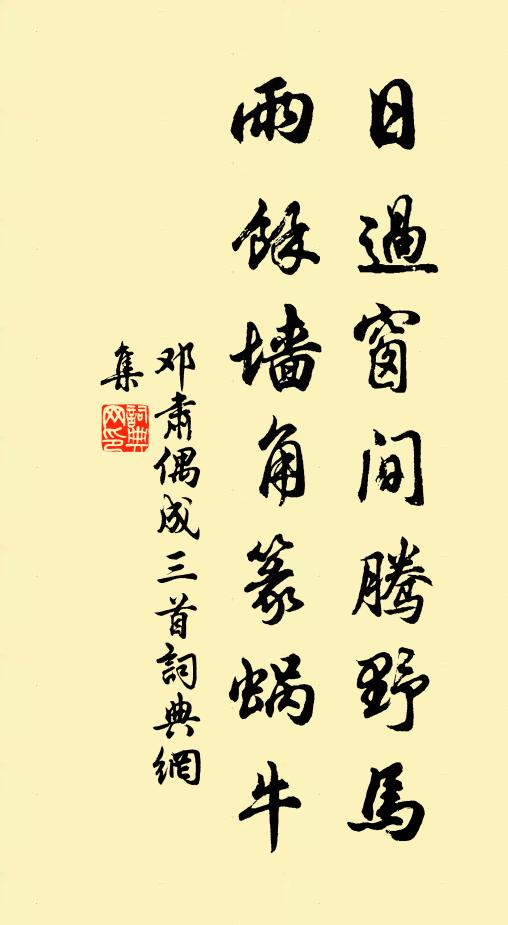 日過窗间騰野馬
雨餘墙角篆蝸牛
邓肃偶成三首詞典網
集
詞典
网印